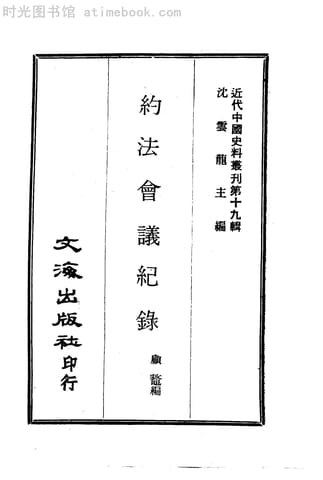 时光图书馆 - atimebook.com
近代中國史料叢刊第十九輯
沈雲龍主編
約法會議紀錄
顧鼇編
文海出版社印行